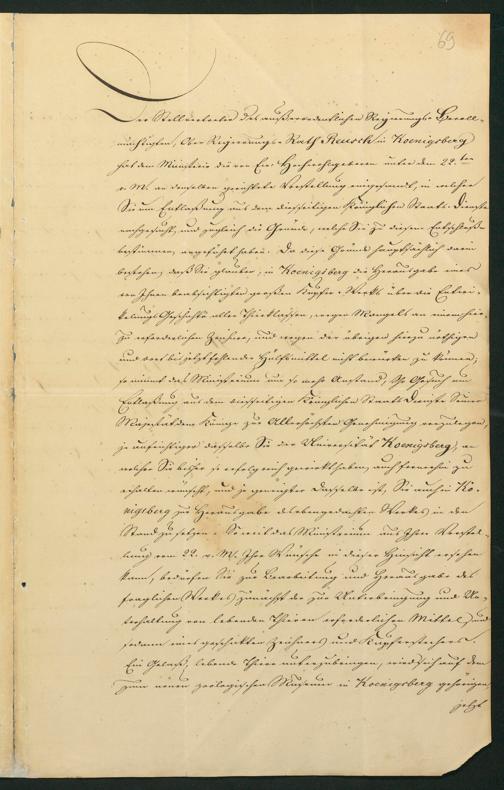 69
Der Stellvertreter des außerordentlichen Regierungs-Bevoll-
mächtigten, Ober Regierungs-Rath Reusch in Koenigsberg
hat dem Ministerio die von Ew. Hochwohlgeboren unter dem 22. ten
v. M. an denselben gerichtete Vorstellung eingesandt, in welcher
Sie um Entlassung aus dem diesseitigen Königlichen Staats-Dienste
nachgesucht, und zugleich die Gründe, welche Sie zu diesem Entschluße
bestimmen, angeführt haben. Da diese Gründe hauptsächlich darin
bestehen, daß Sie glauben, in Koenigsberg die Herausgabe eines
von Ihnen beabsichtigten großen Kupfer-Werks über die Entwi-
kelungs Geschichte aller Thierklassen, wegen Mangels an einem hier-
zu erforderlichen Zeichner, und wegen der übrigen hierzu nöthigen
und dort bis jetzt fehlender Hülfsmittel nicht bewirken zu können;
so nimmt das Ministerium um so mehr Anstand, Ihr Gesuch um
Entlassung aus dem diesseitigen Königlichen Staats Dienste Seiner
Majestät dem Könige zur Allerhöchsten Genehmigung vorzulegen,
je aufrichtiger dasselbe Sie der Universität Koenigsberg, an
welcher Sie bisher so erfolgreich gewirkt haben, auch fernerhin zu
erhalten wünscht, und je geneigter dasselbe ist, Sie auch in Ko-
nigsberg zu Herausgabe des ebengedachten Werkes in den
Stand zu setzen. Soweit das Ministerium aus Ihrer Vorstel-
lung vom 22. v. M. Ihre Wünsche in dieser Hinsicht ersehen
kann, bedürfen Sie zu Bearbeitung und Herausgabe des
fraglichen Werkes zunächst der zur Unterbringung und Un-
terhaltung von lebenden Thieren erforderlichen Mittel, und
sodann eines geschickten Zeichners und Kupferstechers.
Ein Gelaß, lebende Thiere unterzubringen, wird sich auf dem
zum neuen zoologischen Museum in Koenigsberg gehörigen,
jetzt